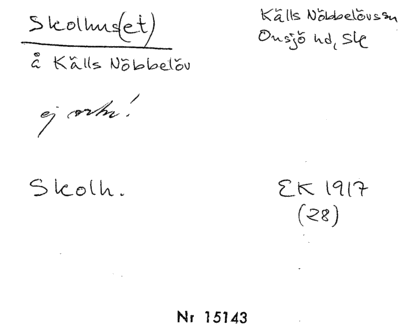 Skolhus(et)
å Källs Nöbbelöv
Källs Nöbbelövs sn
Onsjö hd, Sk
ej
Skolh.
EK 1917
(28)
Nr 15143